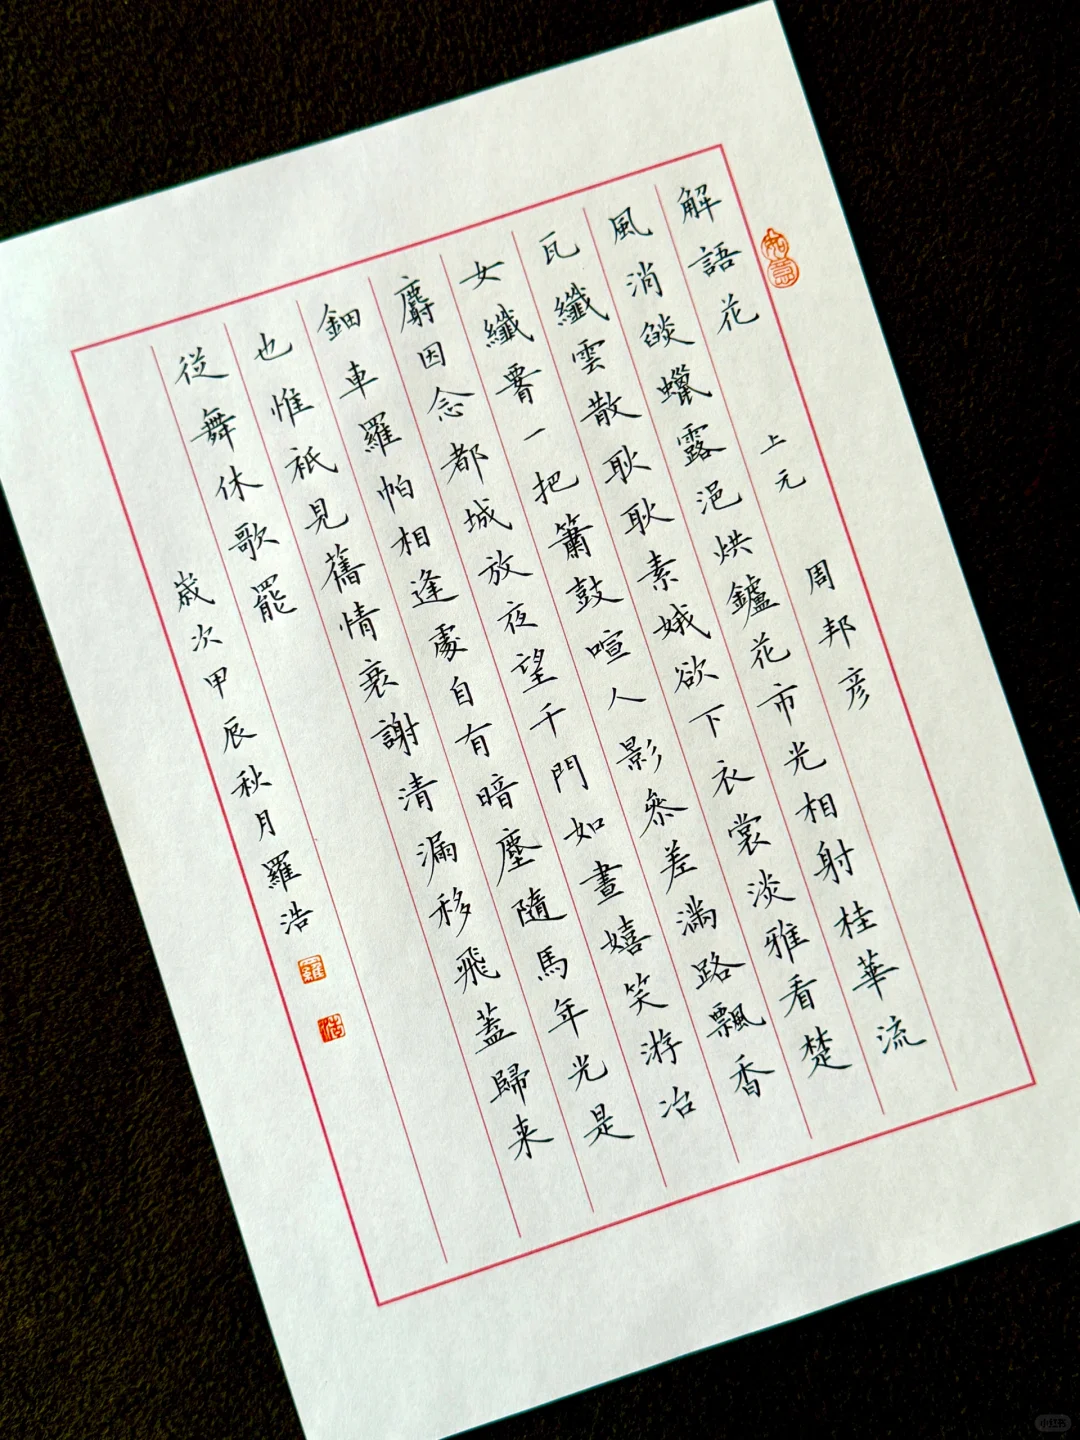 解語花 上元 周邦彦
如意
風消燄蠟露浥烘鑪花市光相射桂華流
瓦纖雲散耿耿素娥欲下衣裳淡雅看楚
女纖署一把簫鼓喧人影參差滿路飄香
麝因念都城放夜望千門如晝嬉笑游冶
鈿車羅帕相逢處自有暗塵隨馬年光是
也惟祇見舊情衰謝清漏移飛蓋歸来
從舞休歌罷
歲次甲辰秋月羅浩
羅
浩
小红书